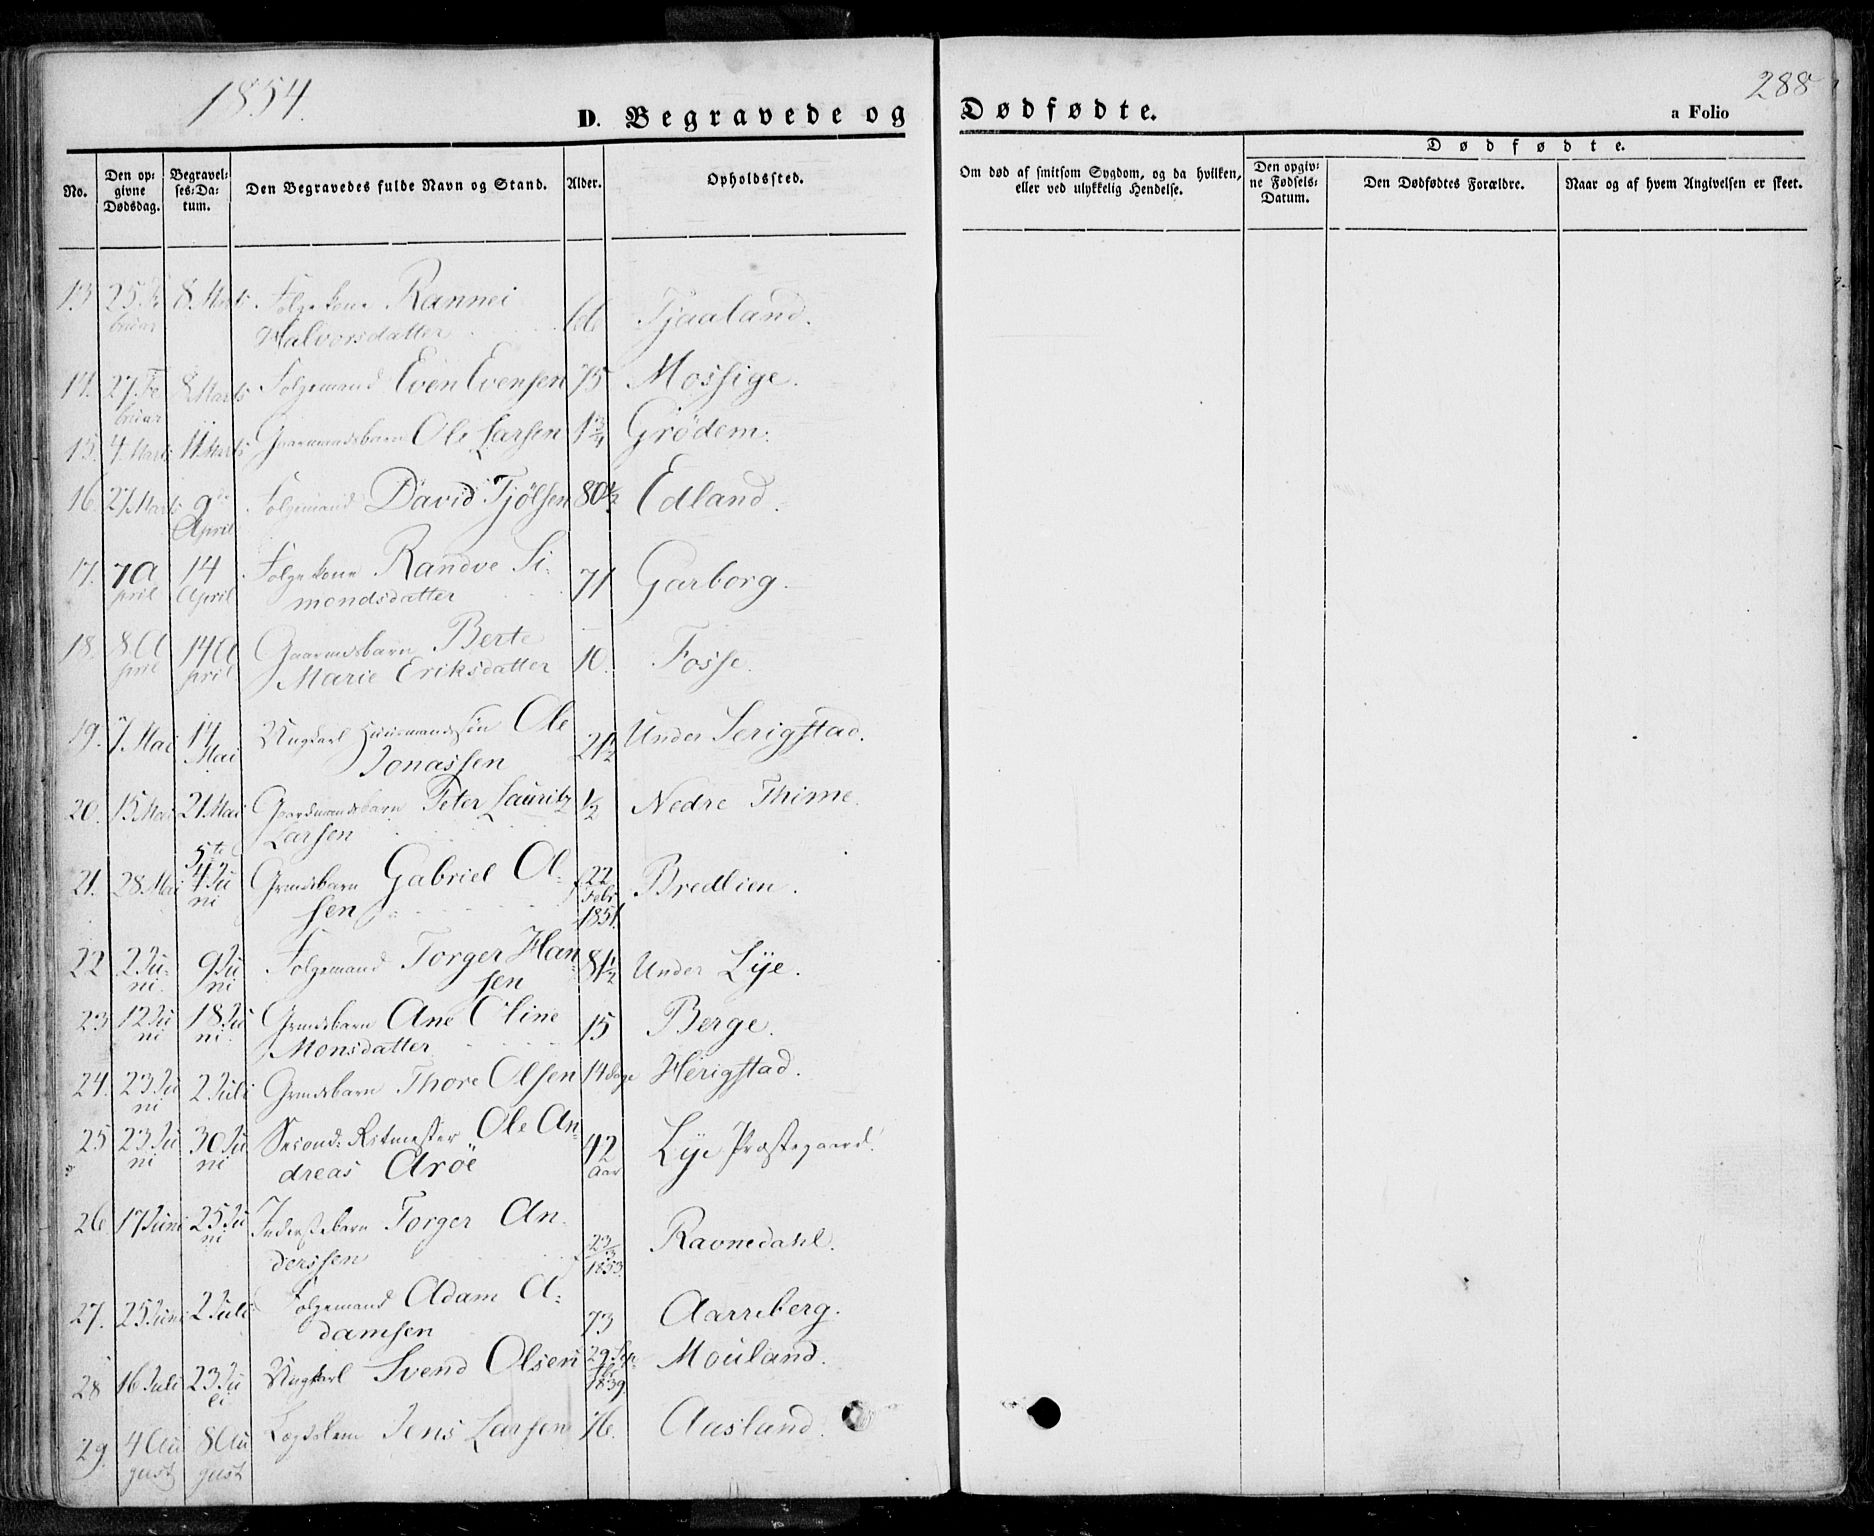 1854.
288
D. Begravede og Dødfødte.
a Folio
No.
Den opgivne Dødsdag.
Begravelses-Datum.
Den Begravedes fulde Navn og Stand.
Alder.
Opholdssted.
Om død af smitsom Sygdom, og da hvilken, eller ved ulykkelig Hendelse.
Dødfødte.
Den opgivne Fødsels-Datum.
Den Dødfødtes Forældre.
Naar og af hvem Angivelsen er skeet.
13 25 Februar 8 Marts Folgekone Rannei Halvorsdatter 66 Tjaaland.
14. 27. Februar 8 Marts Folgemand Even Evensen 75 Mossige.
15. 4 Marts 11 Marts Gaarmandsbarn Ole Larsen 1 3/4 Grödem.
16. 27 Marts 9de April Folgemand David Tjölsen 80 1/2 Edland.
17. 7 April 14 April Folgekone Randve Simonsdatter 71 Garborg.
18. 8 April 14 April Gaarmdsbarn Berte Marie Eriksdatter 10. Fosse.
19. 7 Mai 14 Mai Ungkarl Huusmandssön Ole Jonassen 21 1/2 Under Serigstad.
20. 15 Mai 21 Mai Gaardmandsbarn Peter Lauritz Larsen 1/2 Nedre Thime.
21. 28 Mai 5te 4 Juni Grmdsbarn Gabriel Olsen f 22 Febr 1851. Bredlien.
22 2 Juni. 9 Juni Folgemand Torger Hansen 81 1/2 Under Lye.
23 12 Juni 18 Juni. Grmdsbarn Ane Oline Monsdatter 15 Berge.
24. 23 Juni 2 Juli Grmdsbarn Thore Olsen 14 Dage Herigstad.
25 23 Juni 30 Juni Second-Ritmester Ole Andreas Aröe 42 Aar Lye Præstegaard.
26 17 Juni 25 Juni Inderstebarn Torger Anderssen f 23/3 1853. Ravnedahl.
27. 25 Juni 2 Juli Folgemand Adam Adamsen 73 Aarreberg.
28 16 Juli 23 Juli Ungkarl Svend Olsen 29 Sep 1839 Mouland.
29. 4 August 8 August Lægdslem Jens Larsen 76. Aasland.